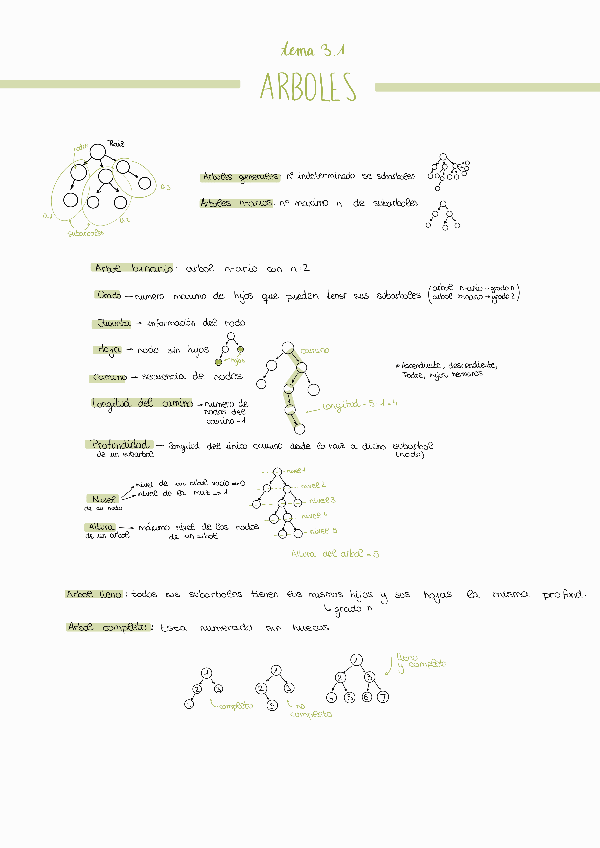 tema 3.1
ARBOLES
Raiz
subarboles
Arboles generales: nº indeterminado de subarboles
Arboles n-arios: nº maximo n de subarboles
Arbol binario: arbol n-ario con n=2
Grado → numero maximo de hijos que pueden tener sus subarboles (arbol n-ario → grado n
arbol binario → grado 2)
→ información del nodo
Hoja → nodo sin hijos
hojas
Camino → secuencia de nodos
camino
* Ascendiente, descendiente,
Padre, hijo, hermano
Longitud del camino → numero de
nodos del
camino - 1
Longitud = 5-1 = 4
Profundidad → longitud del único camino desde la raiz a dicho subarbol
de un subarbol (nodo)
Nivel
de un nodo
→ nivel de un arbol vacio → 0
→ nivel de la raiz → 1
nivel 1
nivel 2
nivel 3
nivel 4
nivel 5
Altura → máximo nivel de los nodos
de un arbol de un arbol
Altura del arbol = 5
Arbol lleno: todos sus subarboles tienen sus mismos hijos y sus hojas la misma profund.
↳ grado n
Arbol completo: Esta numerado sin huecos
1
2
3
completo
1
2
3
5
no
completo
1
2
3
4
5
6
7
lleno
y completo